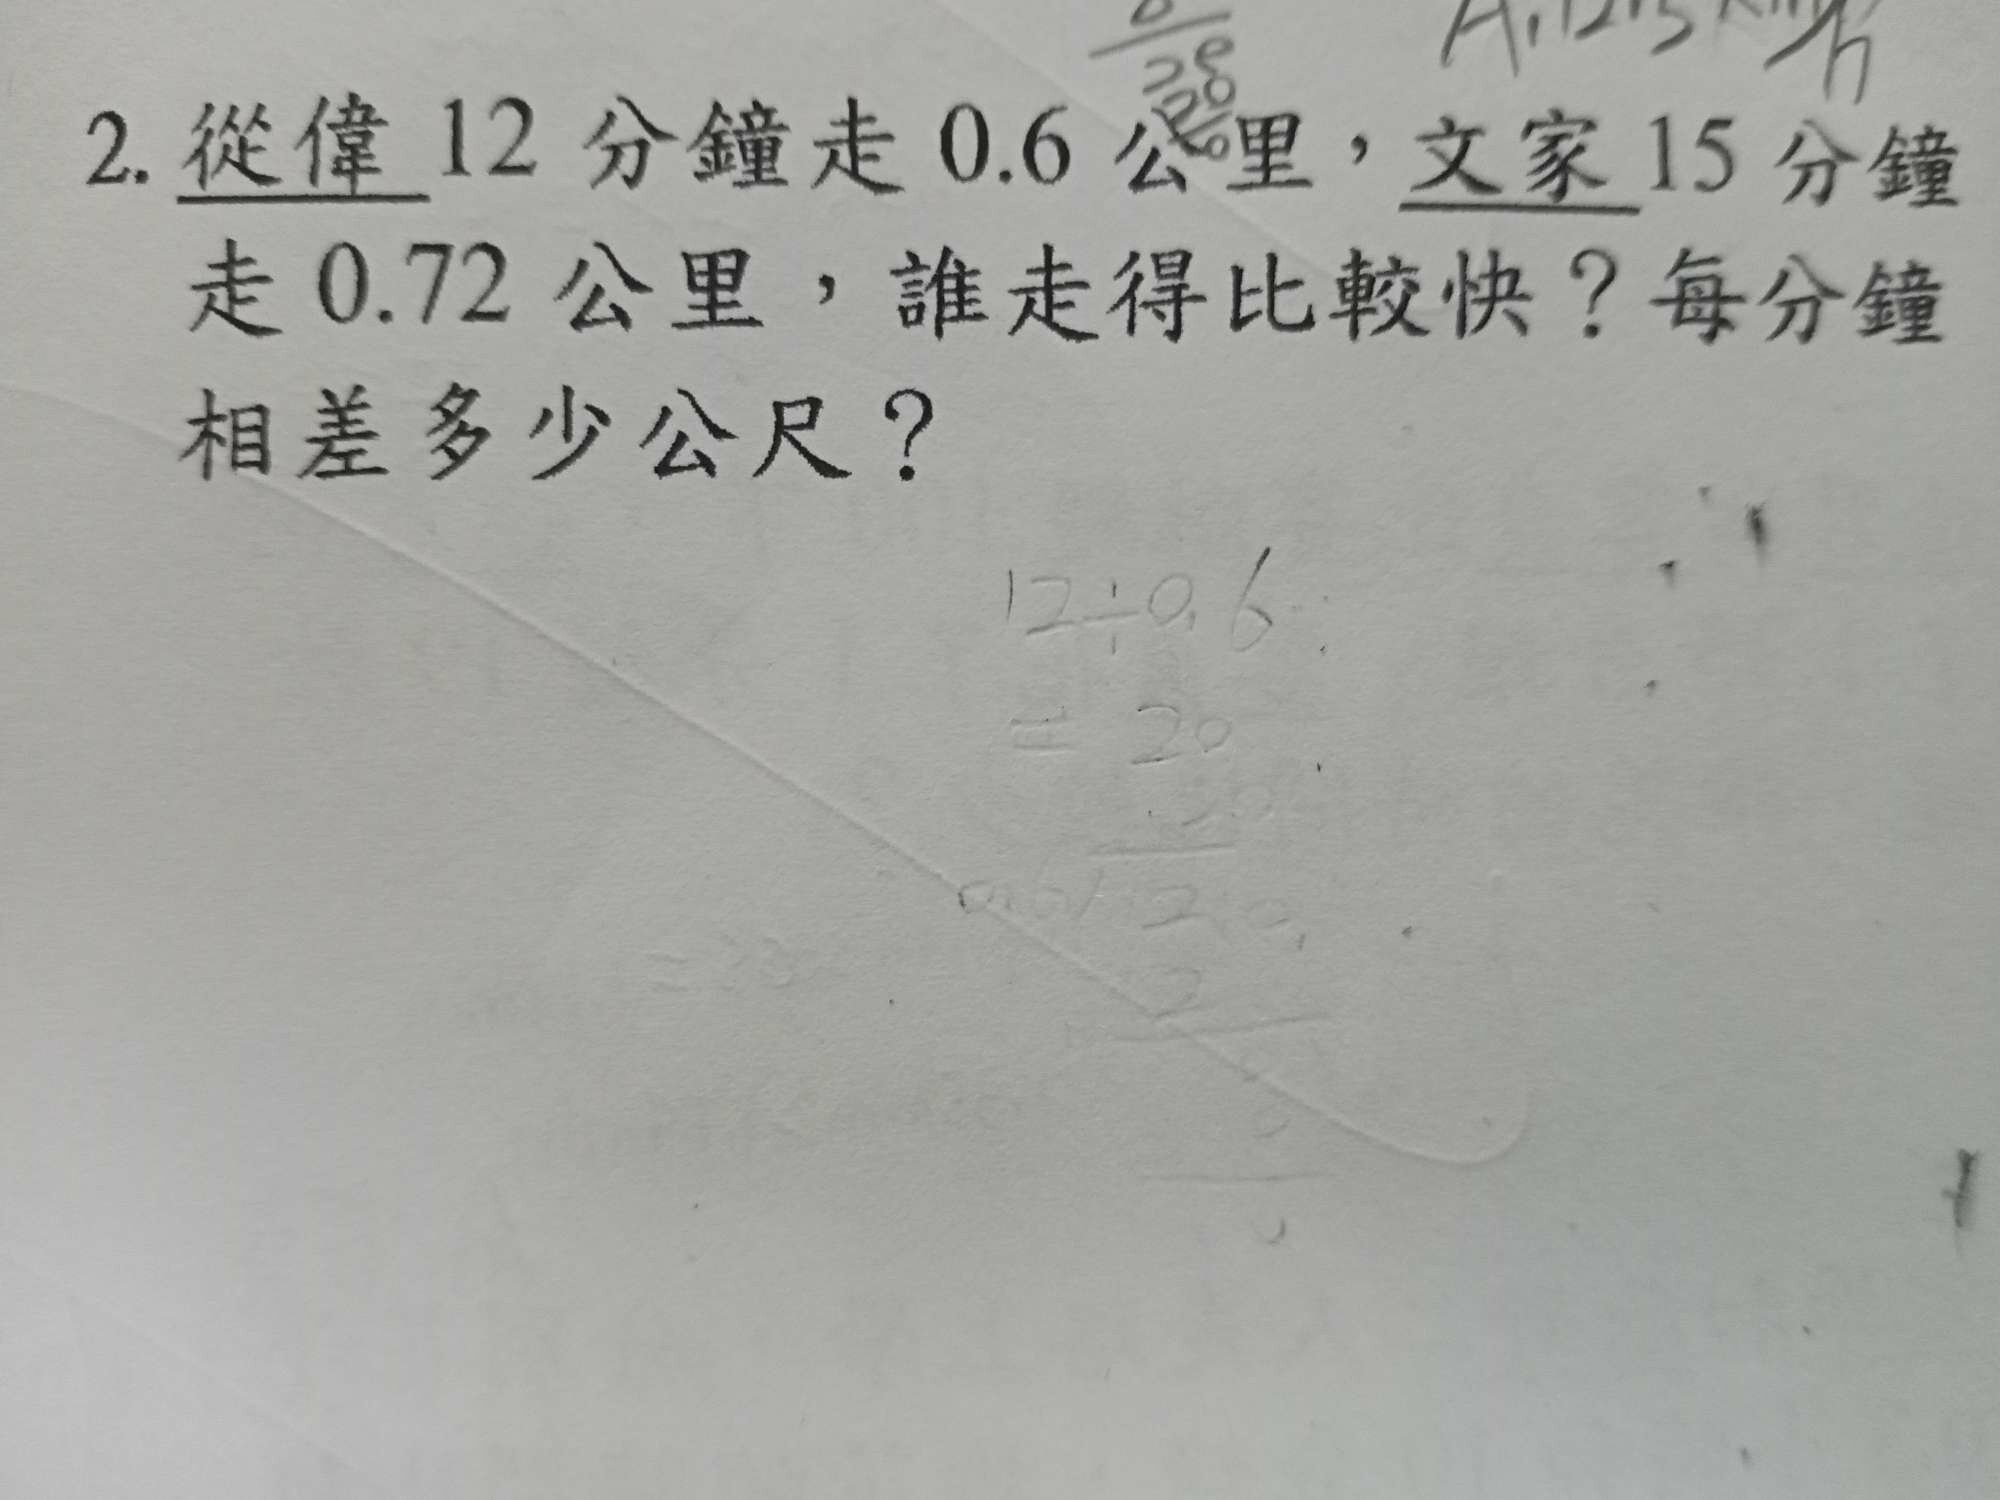 2. 從偉 12 分鐘走 0.6 公里，文家 15 分鐘
走 0.72 公里，誰走得比較快？每分鐘
相差多少公尺？
12÷0.6
= 20